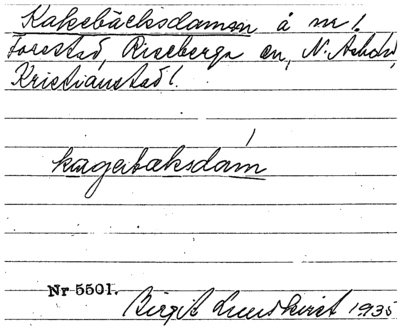 Kakebäcksdammen å nr 1.
Forestad, Riseberga sn, N. Åsbo hd,
Kristianstad l.
kagebæksdam
Nr 5501.
Birgit Lundkvist 1935